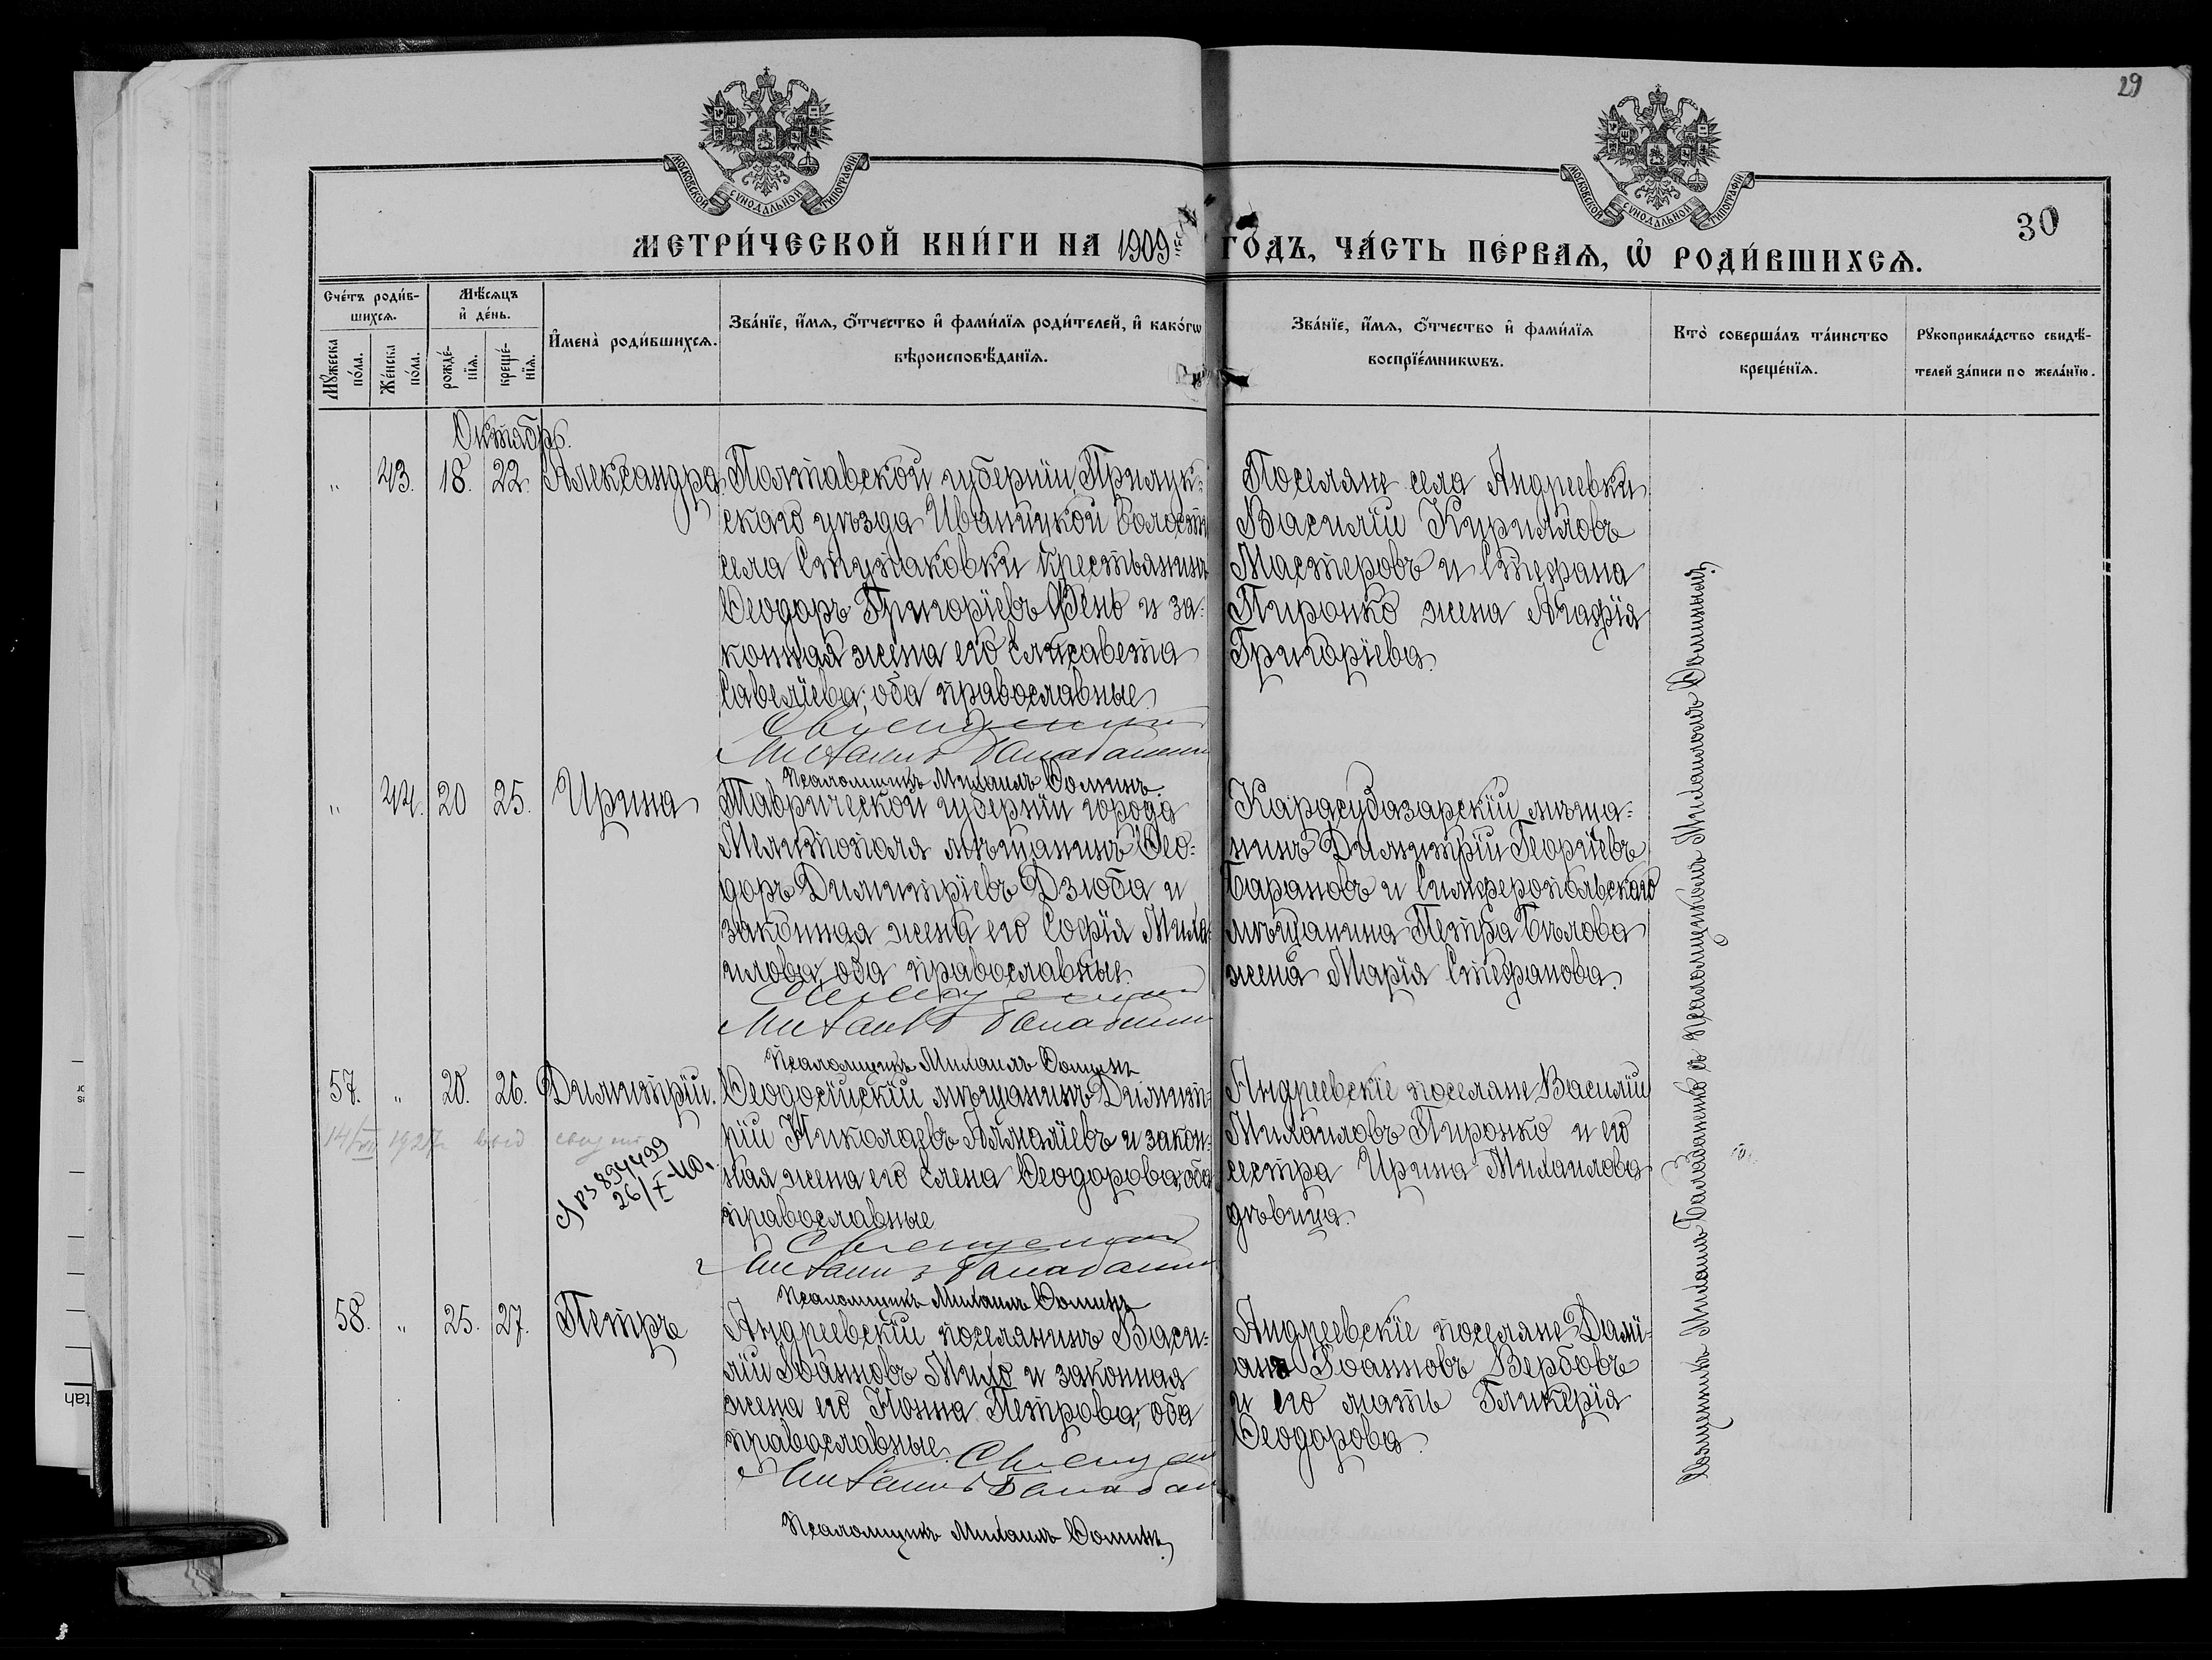 29
30
МОСКОВСКОЙ СѴНОДАЛЬНОЙ ТИПОГРАФІИ
МОСКОВСКОЙ СѴНОДАЛЬНОЙ ТИПОГРАФІИ
МЕТРИ́ЧЕСКОЙ КНИ́ГИ НА 1909 ГО́ДЪ, ЧА́СТЬ ПЕ́РВАѦ, Ѽ РОДИ́ВШИХСѦ.
Сче́тъ роди́в-
шихсѧ.
Мꙋ́жеска по́ла.
Же́нска по́ла.
Мѣ́сѧцъ
и҆ де́нь.
рожде́-
нїѧ.
креще́-
нїѧ.
И҆мена̀ роди́вшихсѧ.
Зва́нїе, и҆́мѧ, ѻ҆́тчество и҆ фами́лїѧ роди́телей, и҆ како́гѡ
вѣроисповѣ́данїѧ.
Зва́нїе, и҆́мѧ, ѻ҆́тчество и҆ фами́лїѧ
воспрїе́мникѡвъ.
Кто̀ соверша́лъ та́инство
креще́нїѧ.
Рꙋкоприкла́дство свидѣ́-
телей за́писи по жела́нїю.
Октябрь.
„ 43. 18. 22. Александра.
Полтавской губерніи, Прилук-
скаго уѣзда Иваницкой волости
села Ступаковки крестьянинъ
Ѳеодоръ Григоріевъ Пень и за-
конная жена его Елисавета
Савеліева; оба православные.
Священникъ
Михаилъ Балабаненко
Псаломщикъ Михаилъ Ѳоминъ.
Поселяне села Андреевки
Василій Кирилловъ
Мастеровъ и Стефана
Пиронко жена Агафія
Григоріева.
„ 44. 20 25. Ирина
Таврической губерніи города
Мелитополя мѣщанинъ Ѳео-
доръ Димитріевъ Дзюба и
законная жена его Софія Миха-
илова, оба православные.
Священникъ
Михаилъ Балабаненко
Псаломщикъ Михаилъ Ѳоминъ
Карасубазарскій мѣща-
нинъ Димитрій Георгіевъ
Барановъ и Симферопольскаго
мѣщанина Петра Бѣлова
жена Марія Стефанова.
57. „ 20. 26. Димитрій.
14/VII 1927 г.
894499
26/I-40.
Ѳеодосійскій мѣщанинъ Димит-
рій Николаевъ Аммаліевъ и закон-
ная жена его Елена Ѳеодорова, оба
православные
Священникъ
Михаилъ Балабаненко
Псаломщикъ Михаилъ Ѳоминъ
Андреевскіе поселяне Василій
Михаиловъ Пиронко и его
сестра Ирина Михаилова
дѣвица.
58. „ 25. 27. Петръ
Андреевскій поселянинъ Васи-
лій Іоанновъ Мило и законная
жена его Нонна Петрова, оба
православные. Священ
Михаилъ Балабан
Псаломщикъ Михаилъ Ѳоминъ.
Андреевскіе поселяне Дамі-
анъ Іоанновъ Вербовъ
и его мать Гликерія
Ѳеодорова.
Священникъ Михаилъ Балабаненко съ псаломщикомъ Михаиломъ Ѳоминымъ